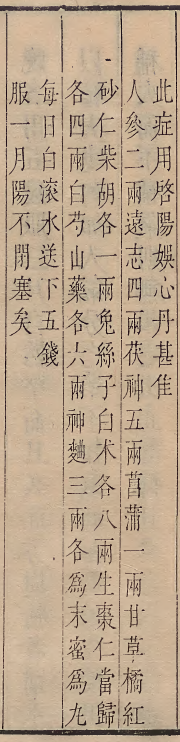 此症用啓陽娛心丹甚佳
人參二兩遠志四兩茯神五兩菖蒲一兩甘草橘紅
砂仁柴胡各一兩兔絲子白朮各八兩生棗仁當歸
各四兩白芍山藥各六兩神麯三兩各爲末蜜爲丸
每日白滾水送下五錢
服一月陽不閉塞矣